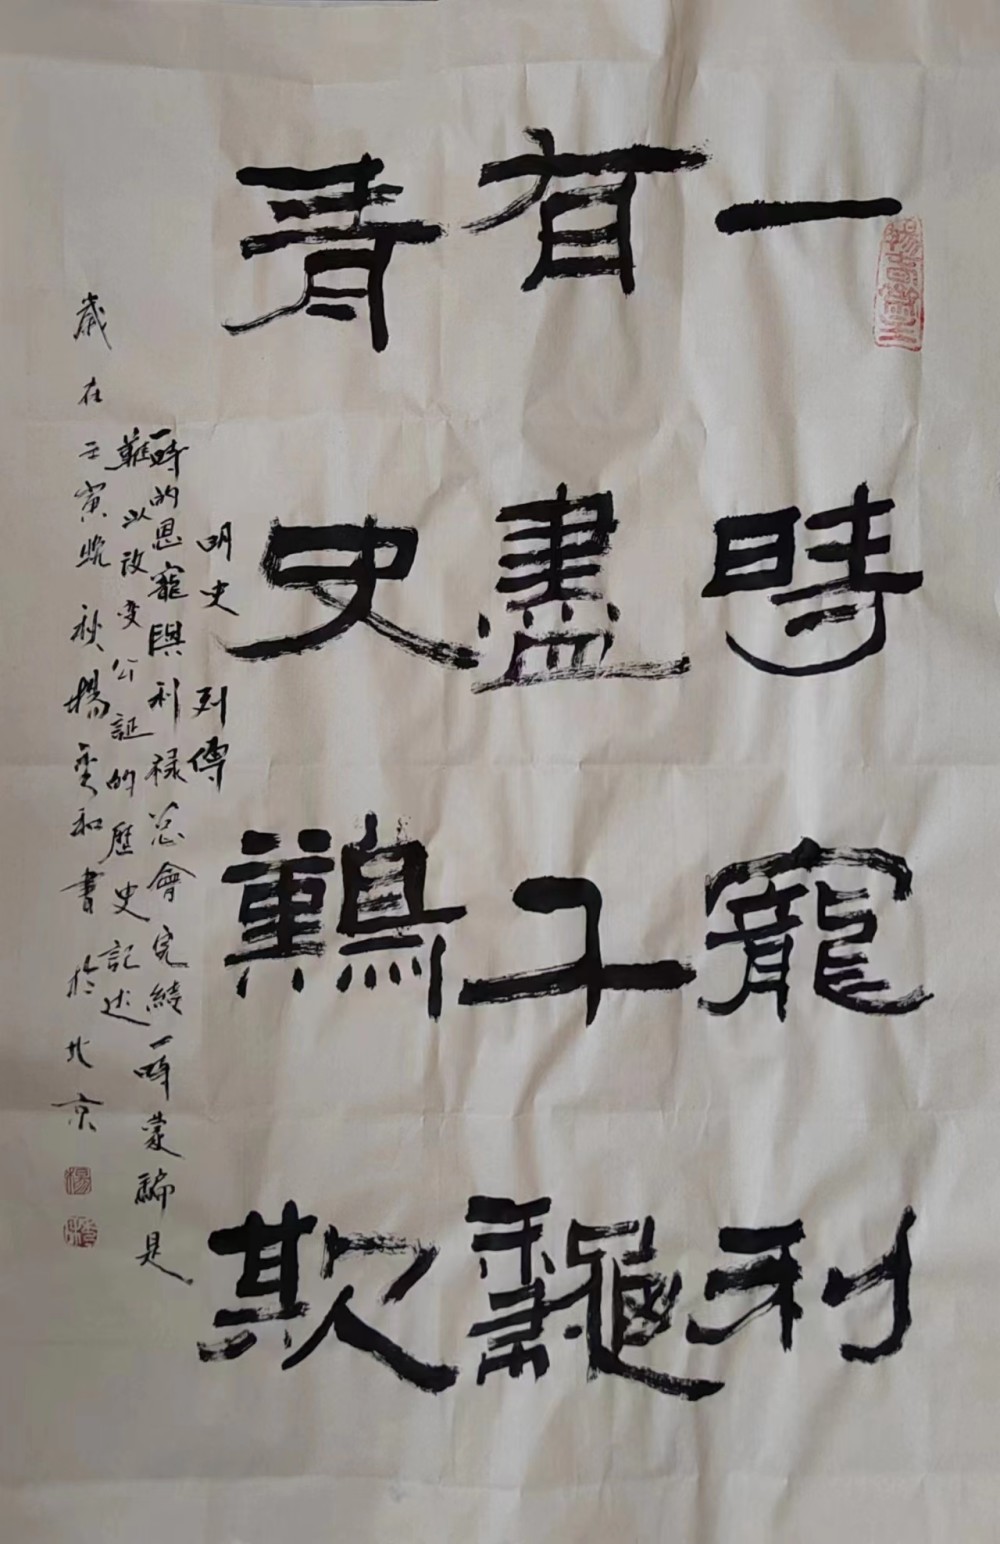 一時寵利
有盡千龝
青史難欺
明史列傳
一時的恩寵與利祿总會完結一時蒙騙是
難以改变公証的歷史記述
歲在壬寅晚秋楊和書於北京